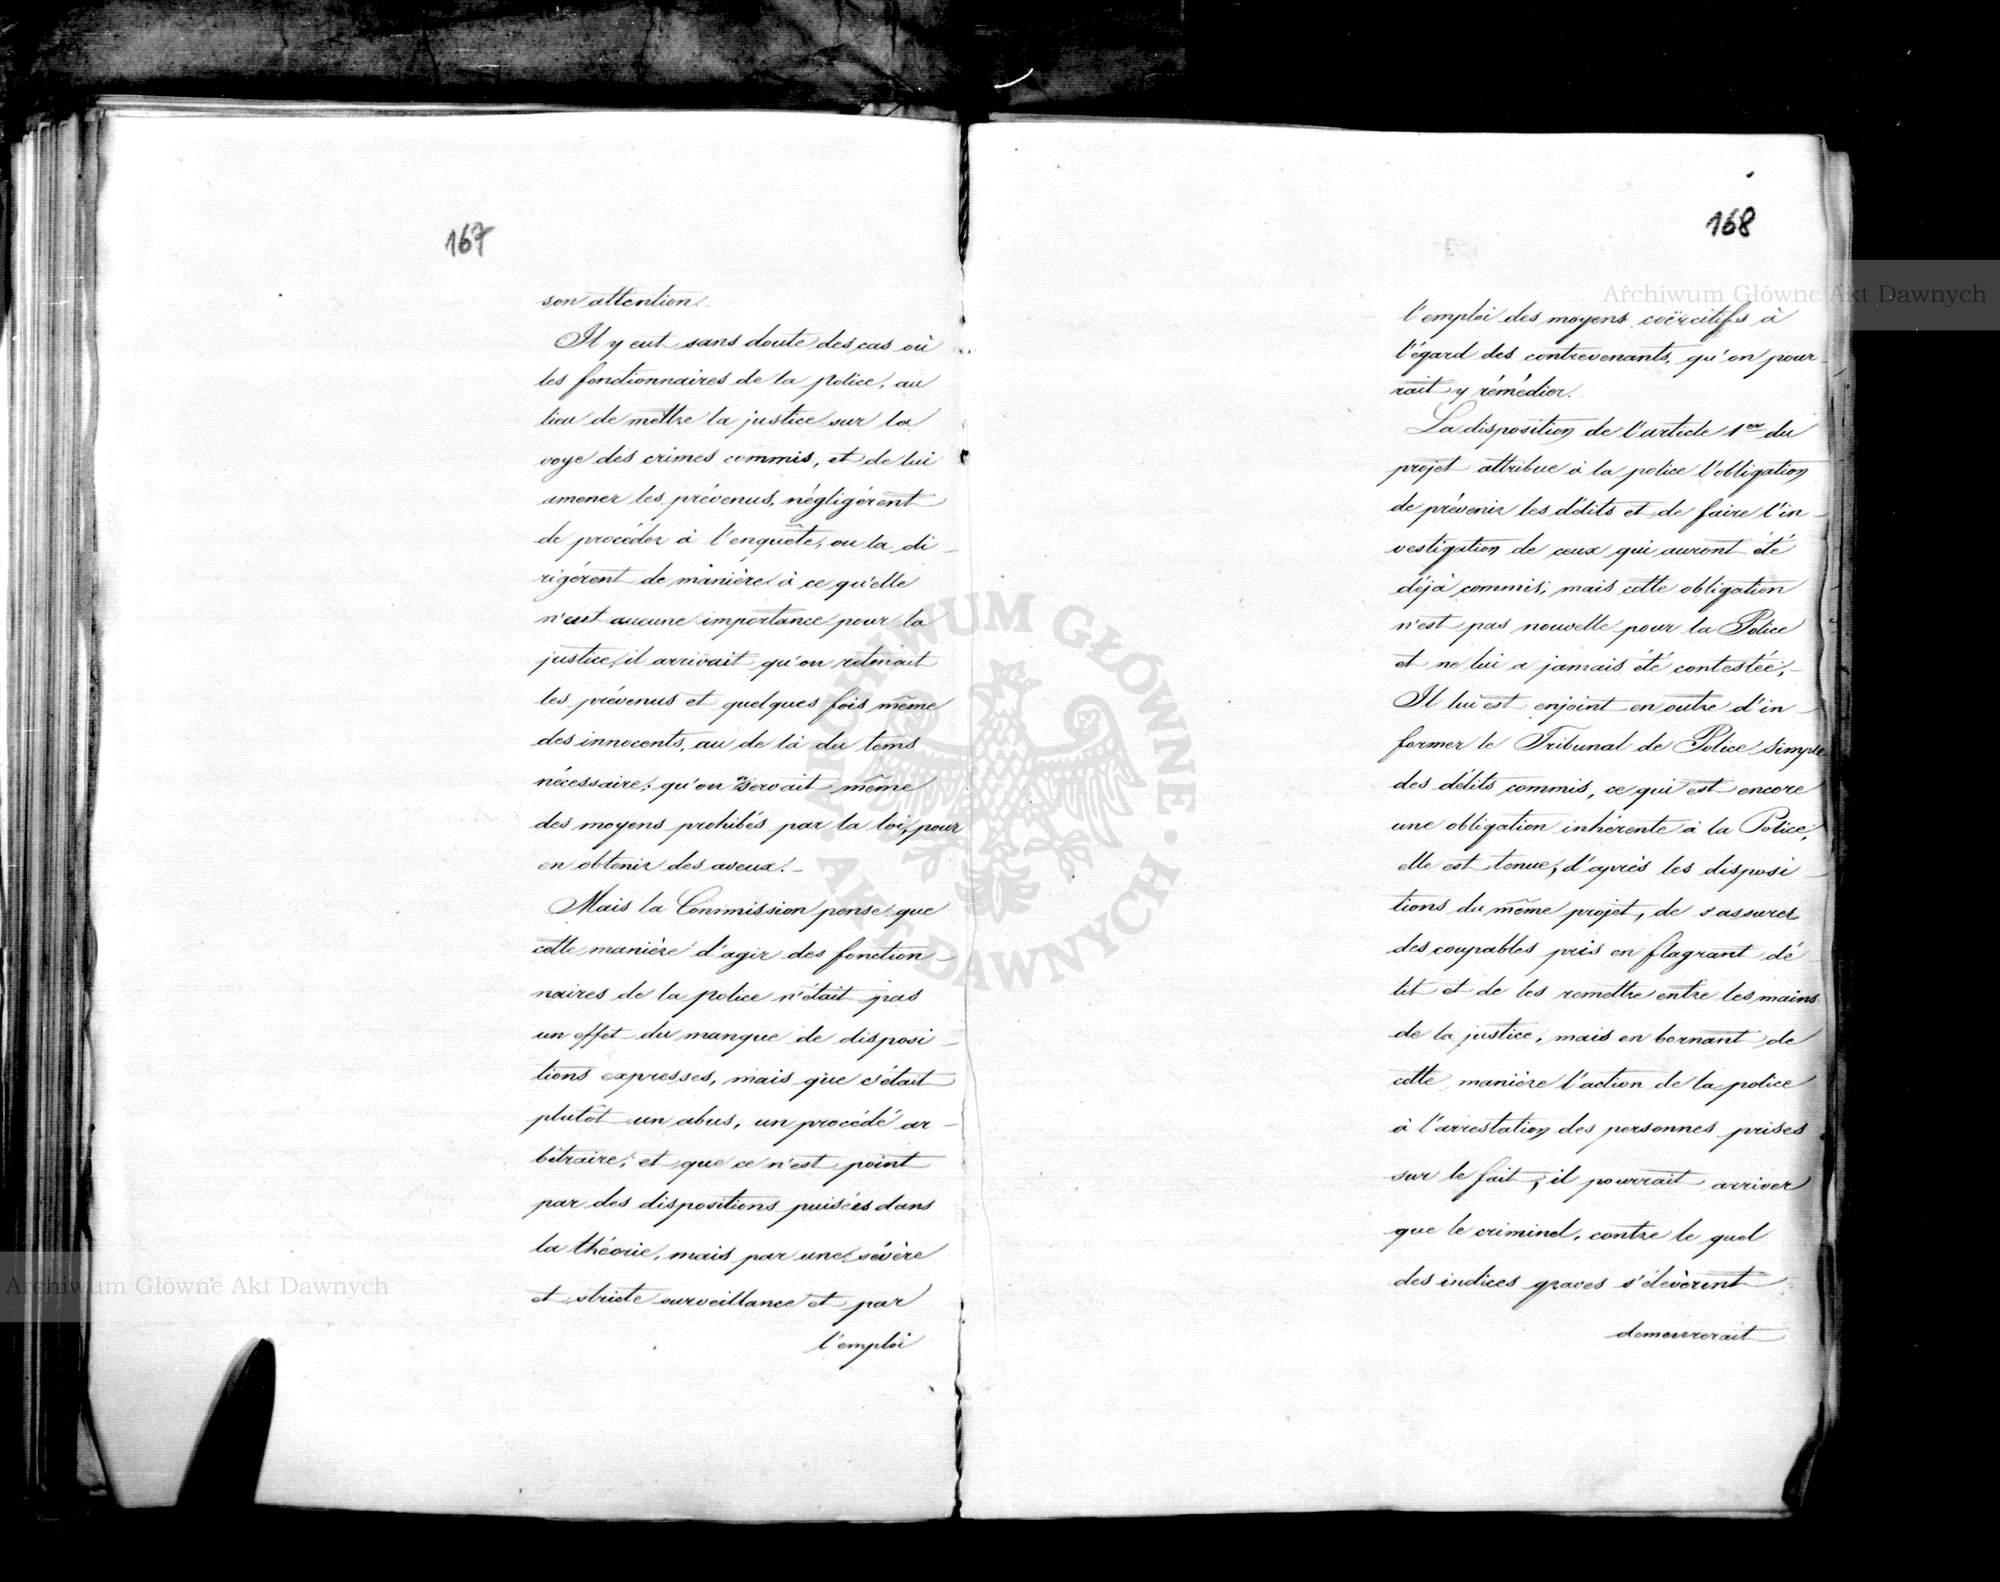 167
son attention.
Il y eut sans doute des cas où
les fonctionnaires de la police, au
lieu de mettre la justice sur la
voye des crimes commis, et de lui
amener les prévenus, négligérent
de procéder à l'enquête, ou la di-
rigérent de mànière à ce qu'elle
n'eut aucune importance pour la
justice, il arrivait qu'on retenait
les prévenus et quelques fois même
des innocents, au de là du tems
nécessaire; qu'on servait même
des moyens prohibés par la loi, pour
en obtenir des aveux. -
Mais la Commission pense que
cette manière d'agir des fonction-
naires de la police n'était pas
un effet du manque de disposi-
tions expresses, mais que c'était
plutôt un abus, un procédé ar-
bitraire; et que ce n'est point
par des dispositions puisées dans
la théorie, mais par une sévère
et stricte surveillance et par
l'emploi
168
l'emploi des moyens coërcitifs à
l'égard des contrevenants, qu'on pour-
rait y rémédier.
La disposition de l'article 1er du
projet attribue à la police l'obligation
de prévenir les délits et de faire l'in-
vestigation de ceux qui auront été
déjà commis; mais cette obligation
n'est pas nouvelle pour la Police
et ne lui a jamais été contestée; -
Il lui est enjoint en outre d'in-
former le Tribunal de Police Simple
des délits commis, ce qui est encore
une obligation inhérente à la Police;
elle est tenue, d'après les disposi-
tions du même projet, de s'assurer
des coupables pris en flagrant dé-
lit et de les remettre entre les mains
de la justice, mais en bornant de
cette manière l'action de la police
à l'arrestation des personnes prises
sur le fait, il pourrait arriver
que le criminel, contre le quel
des indices graves s'élevèrent
demeurerait
Archiwum Główne Akt Dawnych
Archiwum Główne Akt Dawnych
ARCHIWUM GŁÓWNE · AKT DAWNYCH ·